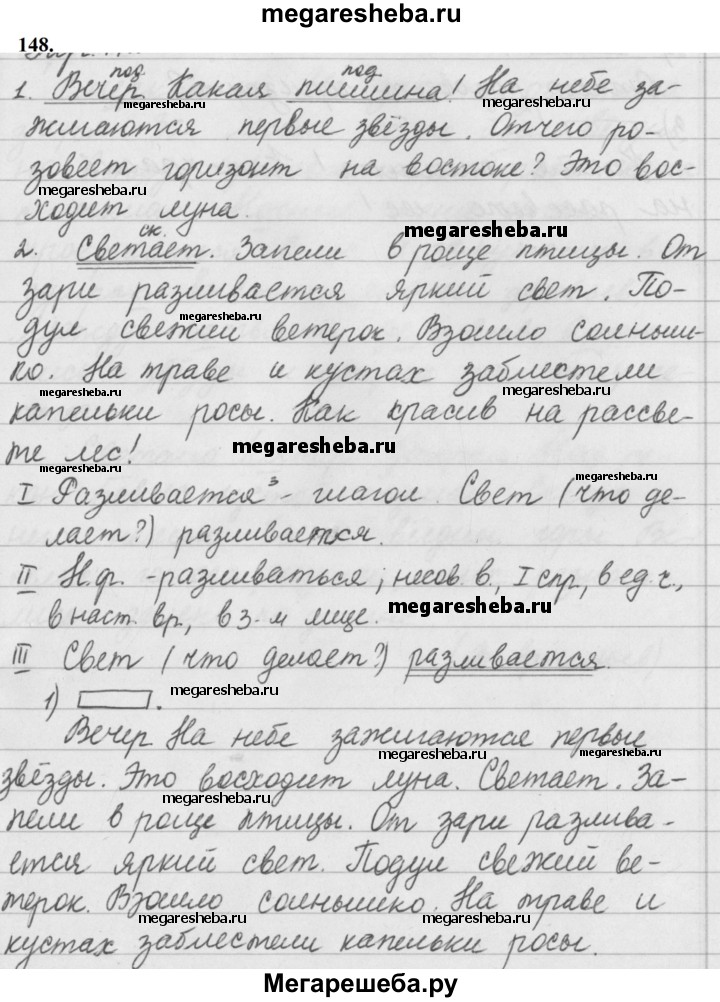 megaresheba.ru
148.
под под
1. Вечер. Какая тишина! На небе за-
megaresheba.ru megaresheba.ru
жигаются первые звёзды. Отчего ро-
зовеет горизонт на востоке? Это вос-
megaresheba.ru megaresheba.ru
ходит луна.
megaresheba.ru
ск.
2. Светает. Запели в роще птицы. От
зари разливается яркий свет. По-
megaresheba.ru
дул свежий ветерок. Взошло солныш-
ко. На траве и кустах заблестели
megaresheba.ru megaresheba.ru
капельки росы. Как красив на рассве-
те лес!
megaresheba.ru
megaresheba.ru
I Разливается³ - глагол. Свет (что де-
лает?) разливается.
II Н.ф. - разливаться; несов. в., I спр., в ед.ч.,
в наст. вр., в 3-м лице.
megaresheba.ru
III Свет (что делает?) разливается.
1) .
megaresheba.ru
Вечер. На небе зажигаются первые
megaresheba.ru
звёзды. Это восходит луна. Светает. За-
megaresheba.ru megaresheba.ru
пели в роще птицы. От зари разлива-
ется яркий свет. Подул свежий ве-
терок. Взошло солнышко. На траве и
megaresheba.ru megaresheba.ru
кустах заблестели капельки росы.
Мегарешеба.ру